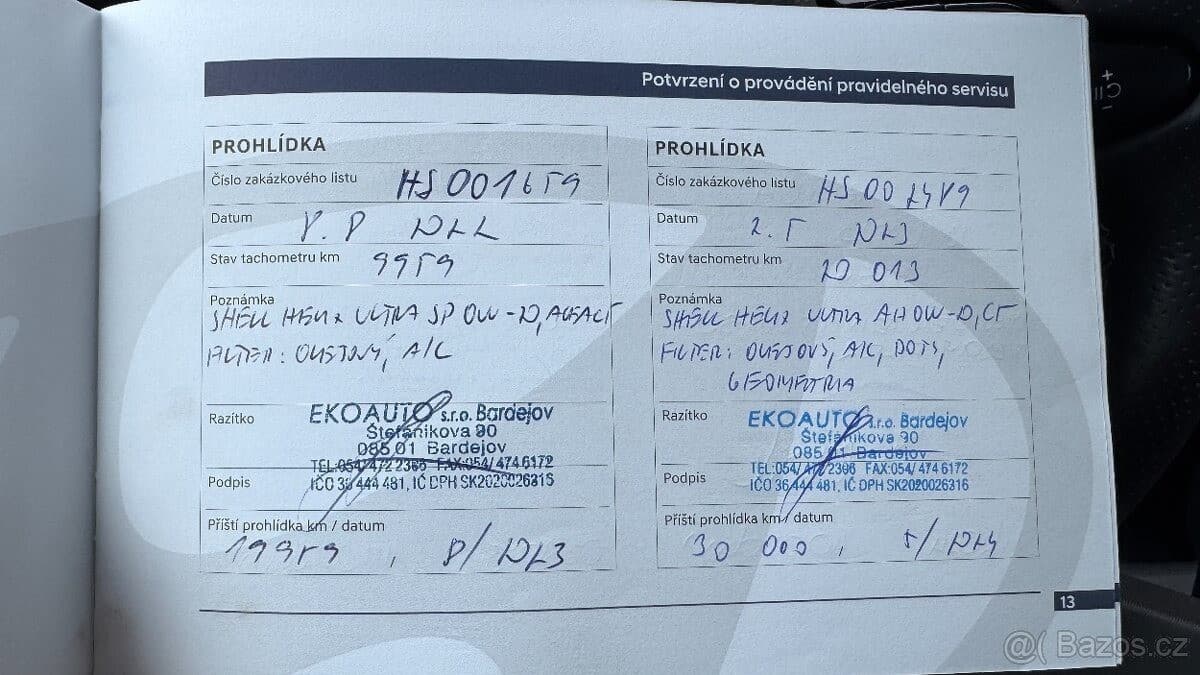 Potvrzení o provádění pravidelného servisu
PROHLÍDKA
Číslo zakázkového listu HS001659
Datum 8.8 2022
Stav tachometru km 9959
Poznámka
SHELL HELIX ULTRA SP 0W-20,
FILTER: OLEJOVÝ, A/C
Razítko
EKOAUTO s.r.o. Bardejov
Štefánikova 90
085 01 Bardejov
TEL:054/472 2366 FAX:054/ 474 6172
IČO 36 444 481, IČ DPH SK2020026316
Podpis
Příští prohlídka km / datum
19959, 8/2023
PROHLÍDKA
Číslo zakázkového listu HS002489
Datum 2.5 2023
Stav tachometru km 20 013
Poznámka
SHELL HELIX ULTRA AH 0W-20,
FILTER: OLEJOVÝ, A/C, DOT4,
GEOMETRIA
Razítko
EKOAUTO s.r.o. Bardejov
Štefánikova 90
085 01 Bardejov
TEL:054/472 2366 FAX:054/ 474 6172
IČO 36 444 481, IČ DPH SK2020026316
Podpis
Příští prohlídka km / datum
30 000, 5/2024
13
@( Bazos.cz